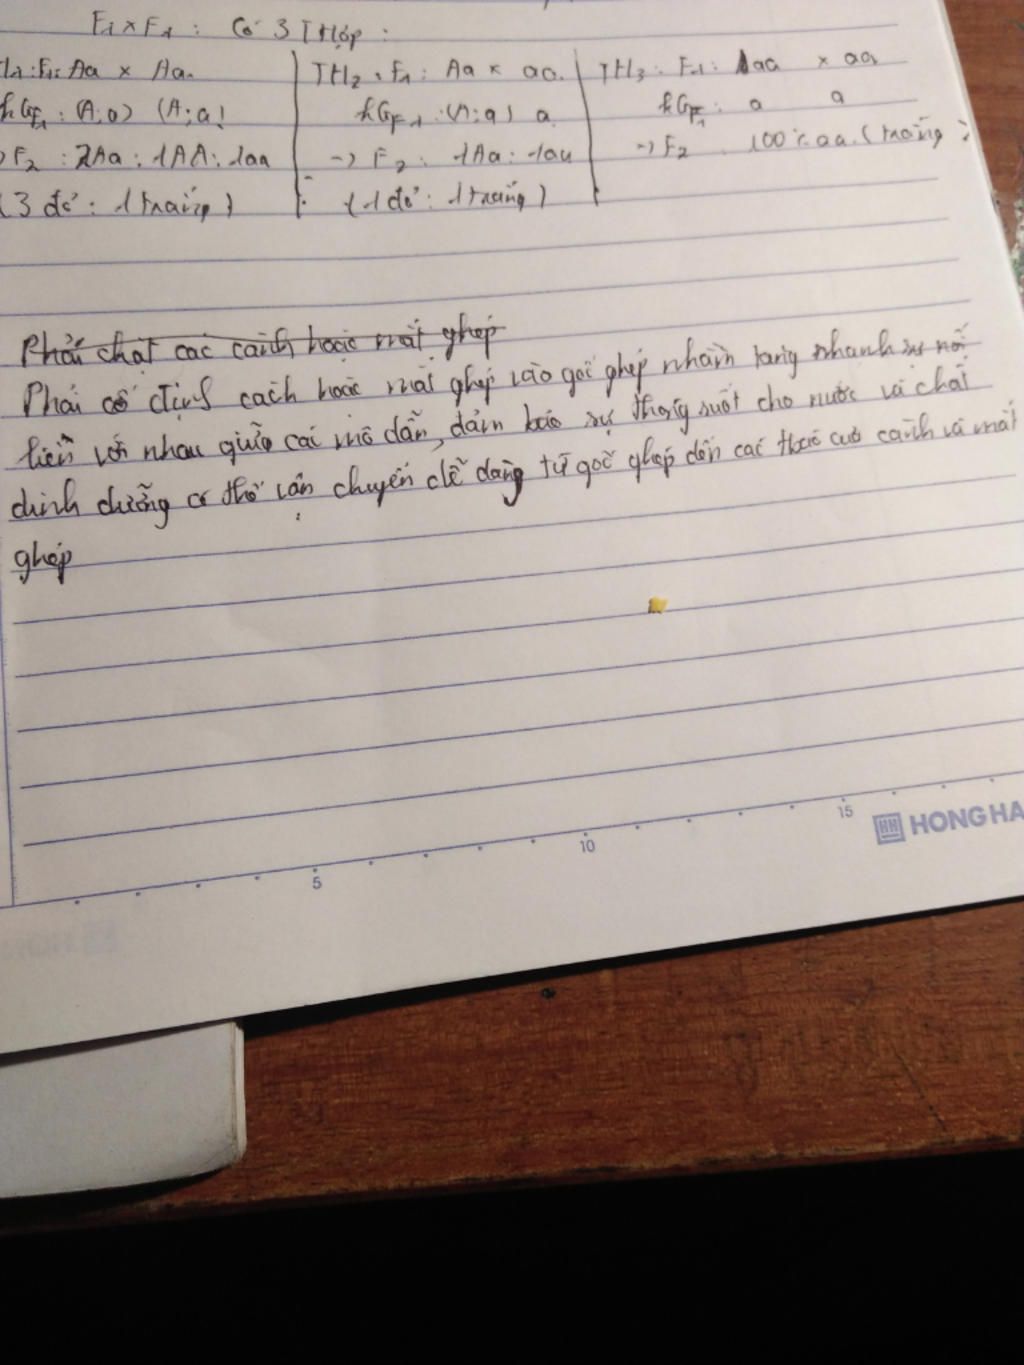 F1 x F1 : Có 3 THợp :
F1: Aa x Aa
kGF1 : (A;a) (A;a)
F2 : 2Aa : 1AA : 1aa
(3 đỏ : 1 trắng)
TH2 . F1 : Aa x aa
kGF1 : (A;a) a
-> F2 : 1Aa : 1aa
(1 đỏ : 1 trắng)
TH3 : F1 : aa x aa
kGF1 : a a
-> F2 100% aa (trắng)
Phải chặt các cành hoặc mắt ghép
Phải cố định cách hoặc mắt ghép vào gốc ghép nhằm tăng nhanh sự nối
liền với nhau giữa các mô dẫn, đảm bảo sự thông suốt cho nước và chất
dinh dưỡng có thể vận chuyển dễ dàng từ gốc ghép đến các của cành và mắt
ghép
5
10
15
HH HONG HA